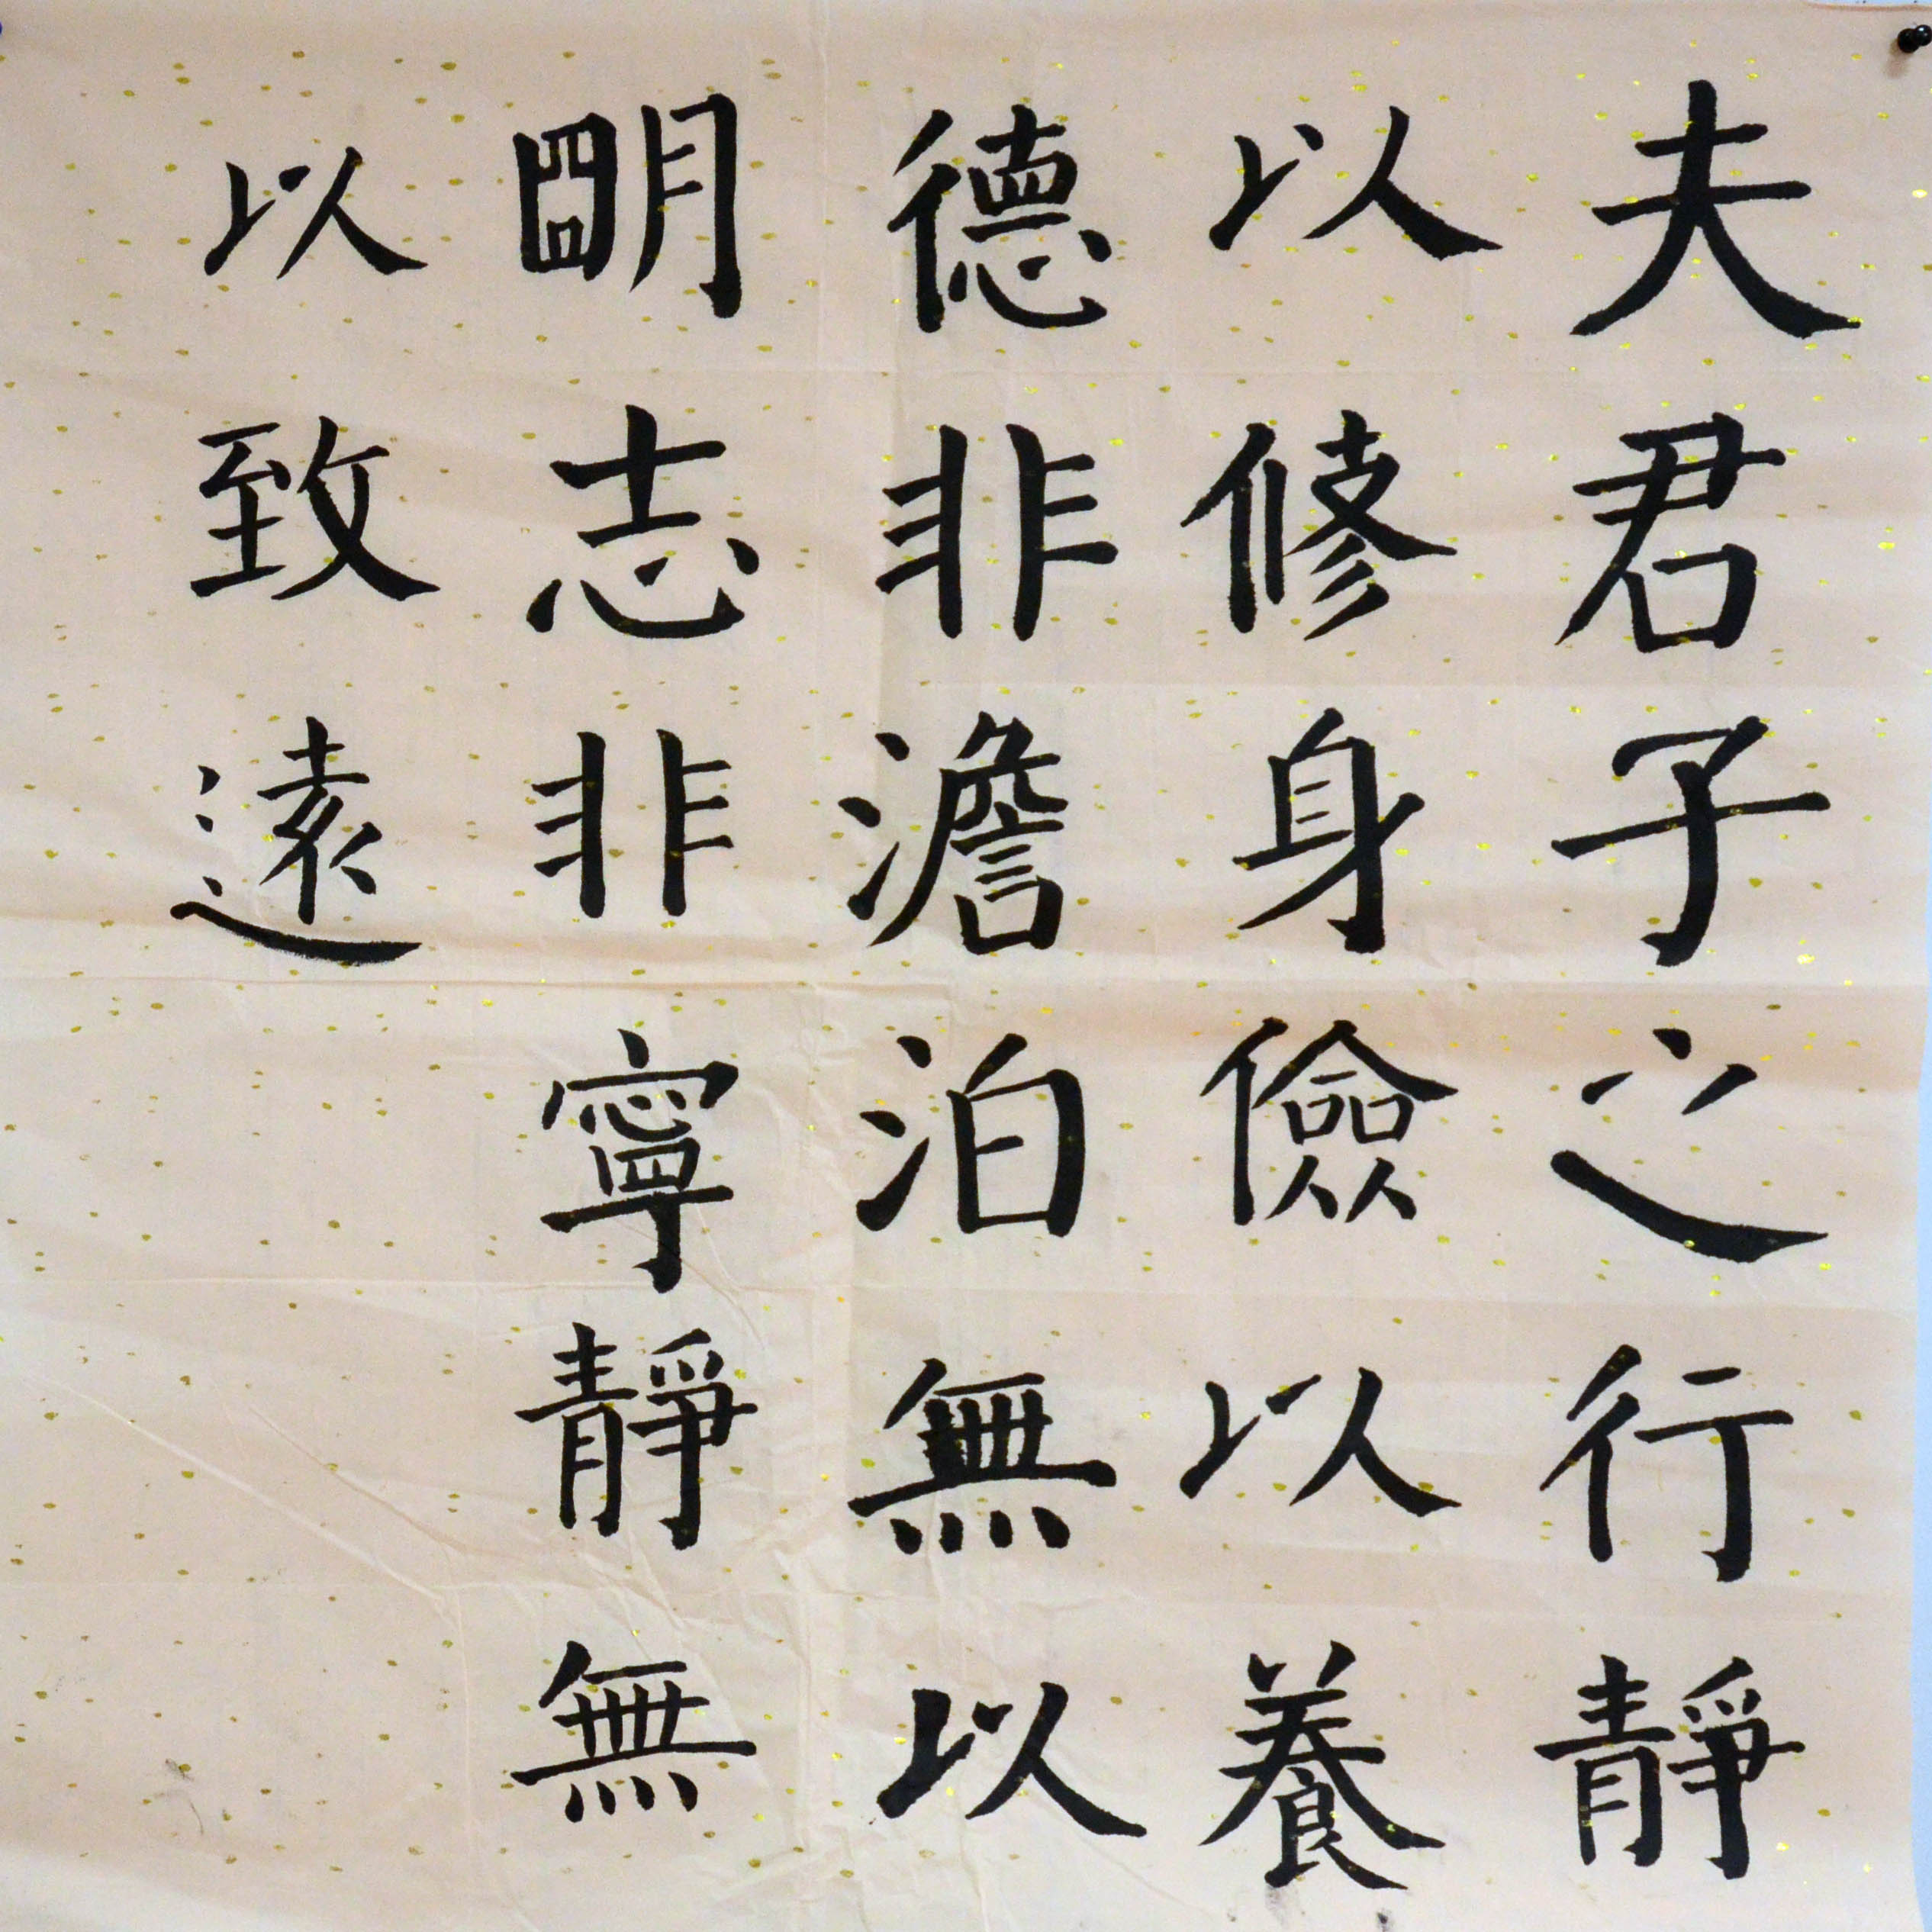 夫君子之行靜
以修身儉以養
德非澹泊無以
明志非寧靜無
以致遠